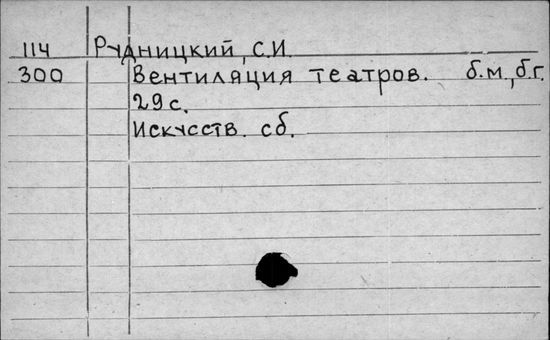 114 Рудницкий, С.И.
300 Вентиляция театров. б.м, б.г.
29 с.
Искусств. сб.